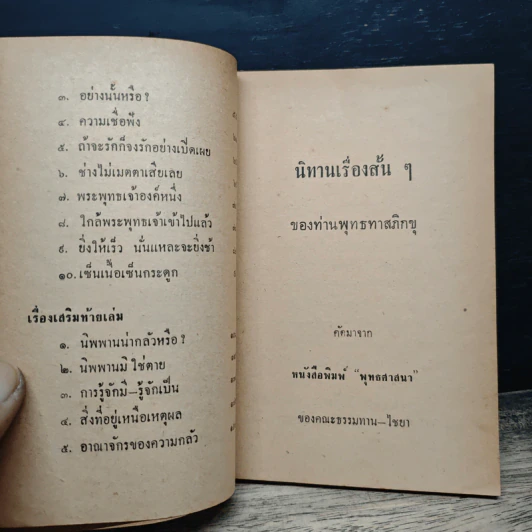 ๓. อย่างนั้นหรือ ?
๔. ความเชื่อฟัง
๕. ถ้าจะรักก็จงรักอย่างเปิดเผย
๖. ช่างไม่เมตตาเสียเลย
๗. พระพุทธเจ้าองค์หนึ่ง
๘. ใกล้พระพุทธเจ้าเข้าไปแล้ว
๙. ยิ่งให้เร็ว นั่นแหละจะยิ่งช้า
๑๐. เซ็นเนื้อเซ็นกระดูก
เรื่องเสริมท้ายเล่ม
๑. นิพพานน่ากลัวหรือ ?
๒. นิพพานมิใช่ตาย
๓. การรู้จักมี—รู้จักเป็น
๔. สิ่งที่อยู่เหนือเหตุผล
๕. อาณาจักรของความกลัว
นิทานเรื่องสั้น ๆ
ของท่านพุทธทาสภิกขุ
คัดมาจาก
หนังสือพิมพ์ "พุทธศาสนา"
ของคณะธรรมทาน—ไชยา